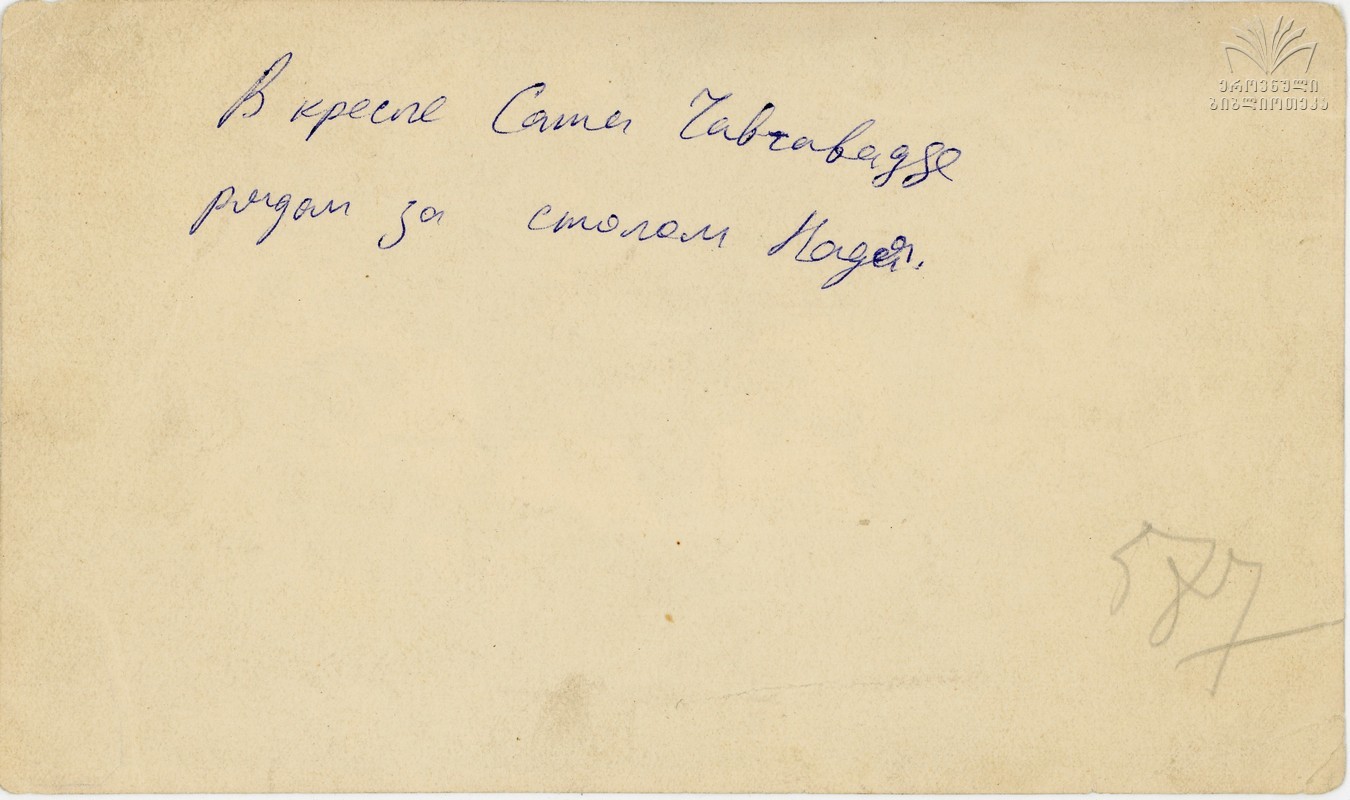 ეროვნული
ბიბლიოთეკა
В кресле Саша Чавчавадзе
рядом за столом Надя.
587